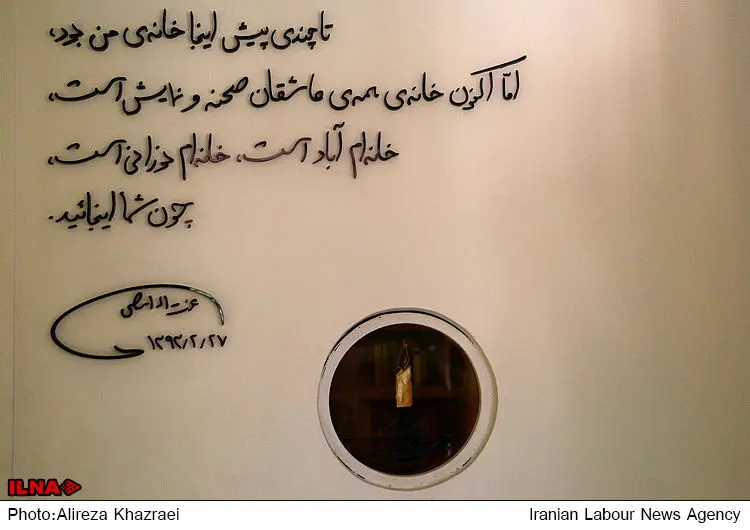 تا چندی پیش اینجا خانه‌ی من بود،
امّا اکنون خانه‌ی همه‌ی عاشقان صحنه و نمایش است،
خانه‌ام آباد است، خانه‌ام نورانی است،
چون شما اینجائید.
عزت اله انتظامی
۱۳۹۳/۲/۲۷
ILNA
Photo:Alireza Khazraei
Iranian Labour News Agency